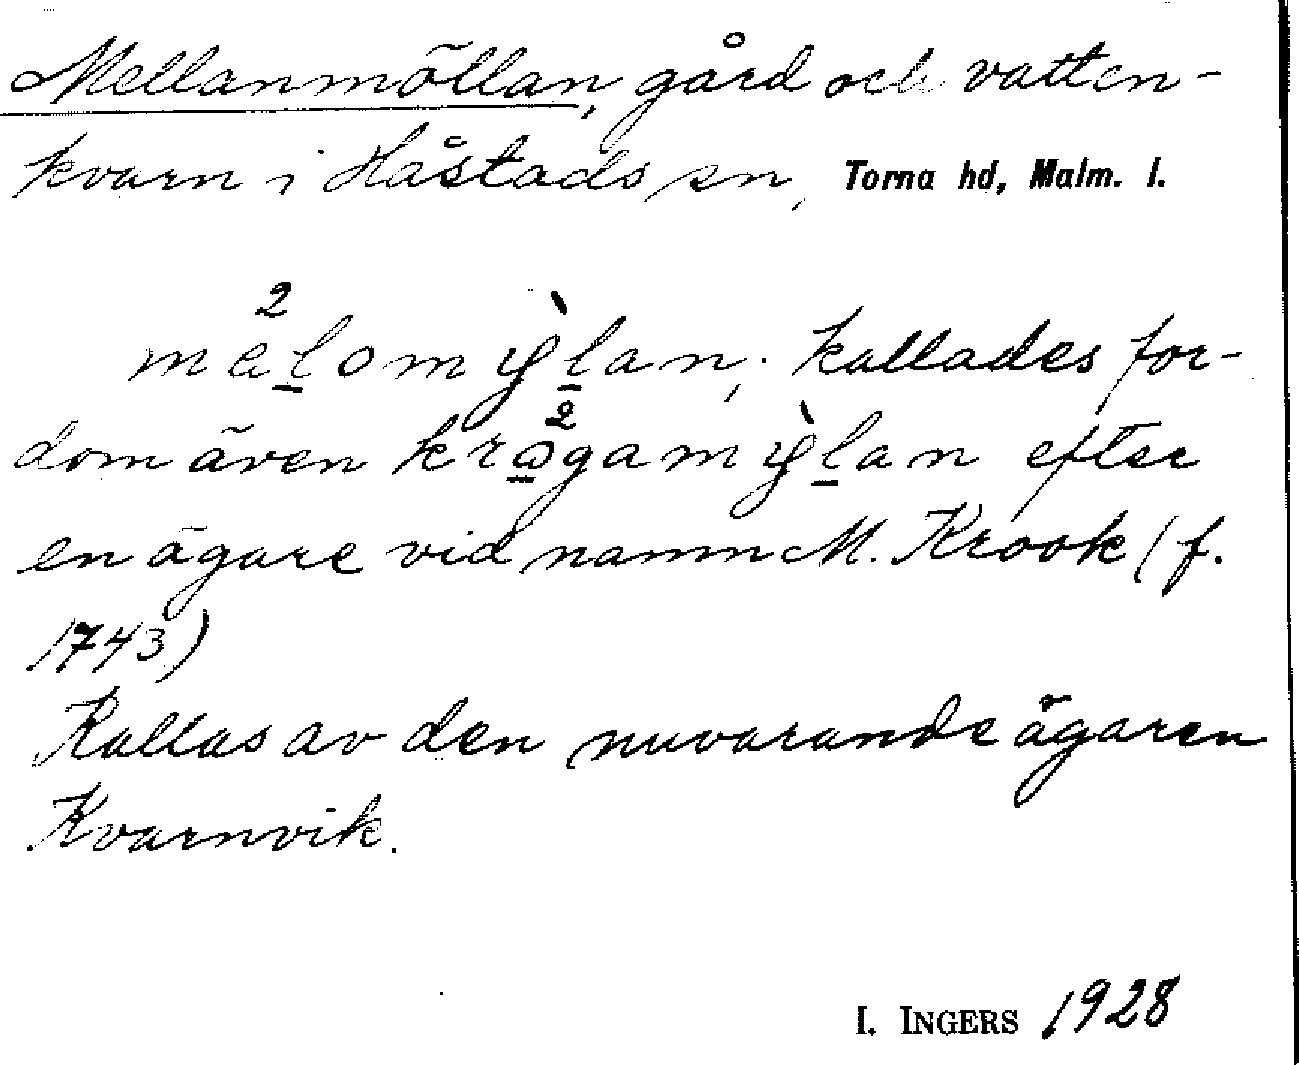 Mellanmöllan, gård och vatten-
kvarn i Håstads sn, Torna hd, Malm. l.
kallades for-
dom även efter
en ägare vid namn M. Krook (f.
1743)
Kallas av den nuvarande ägaren
Kvarnvik.
I. INGERS 1928